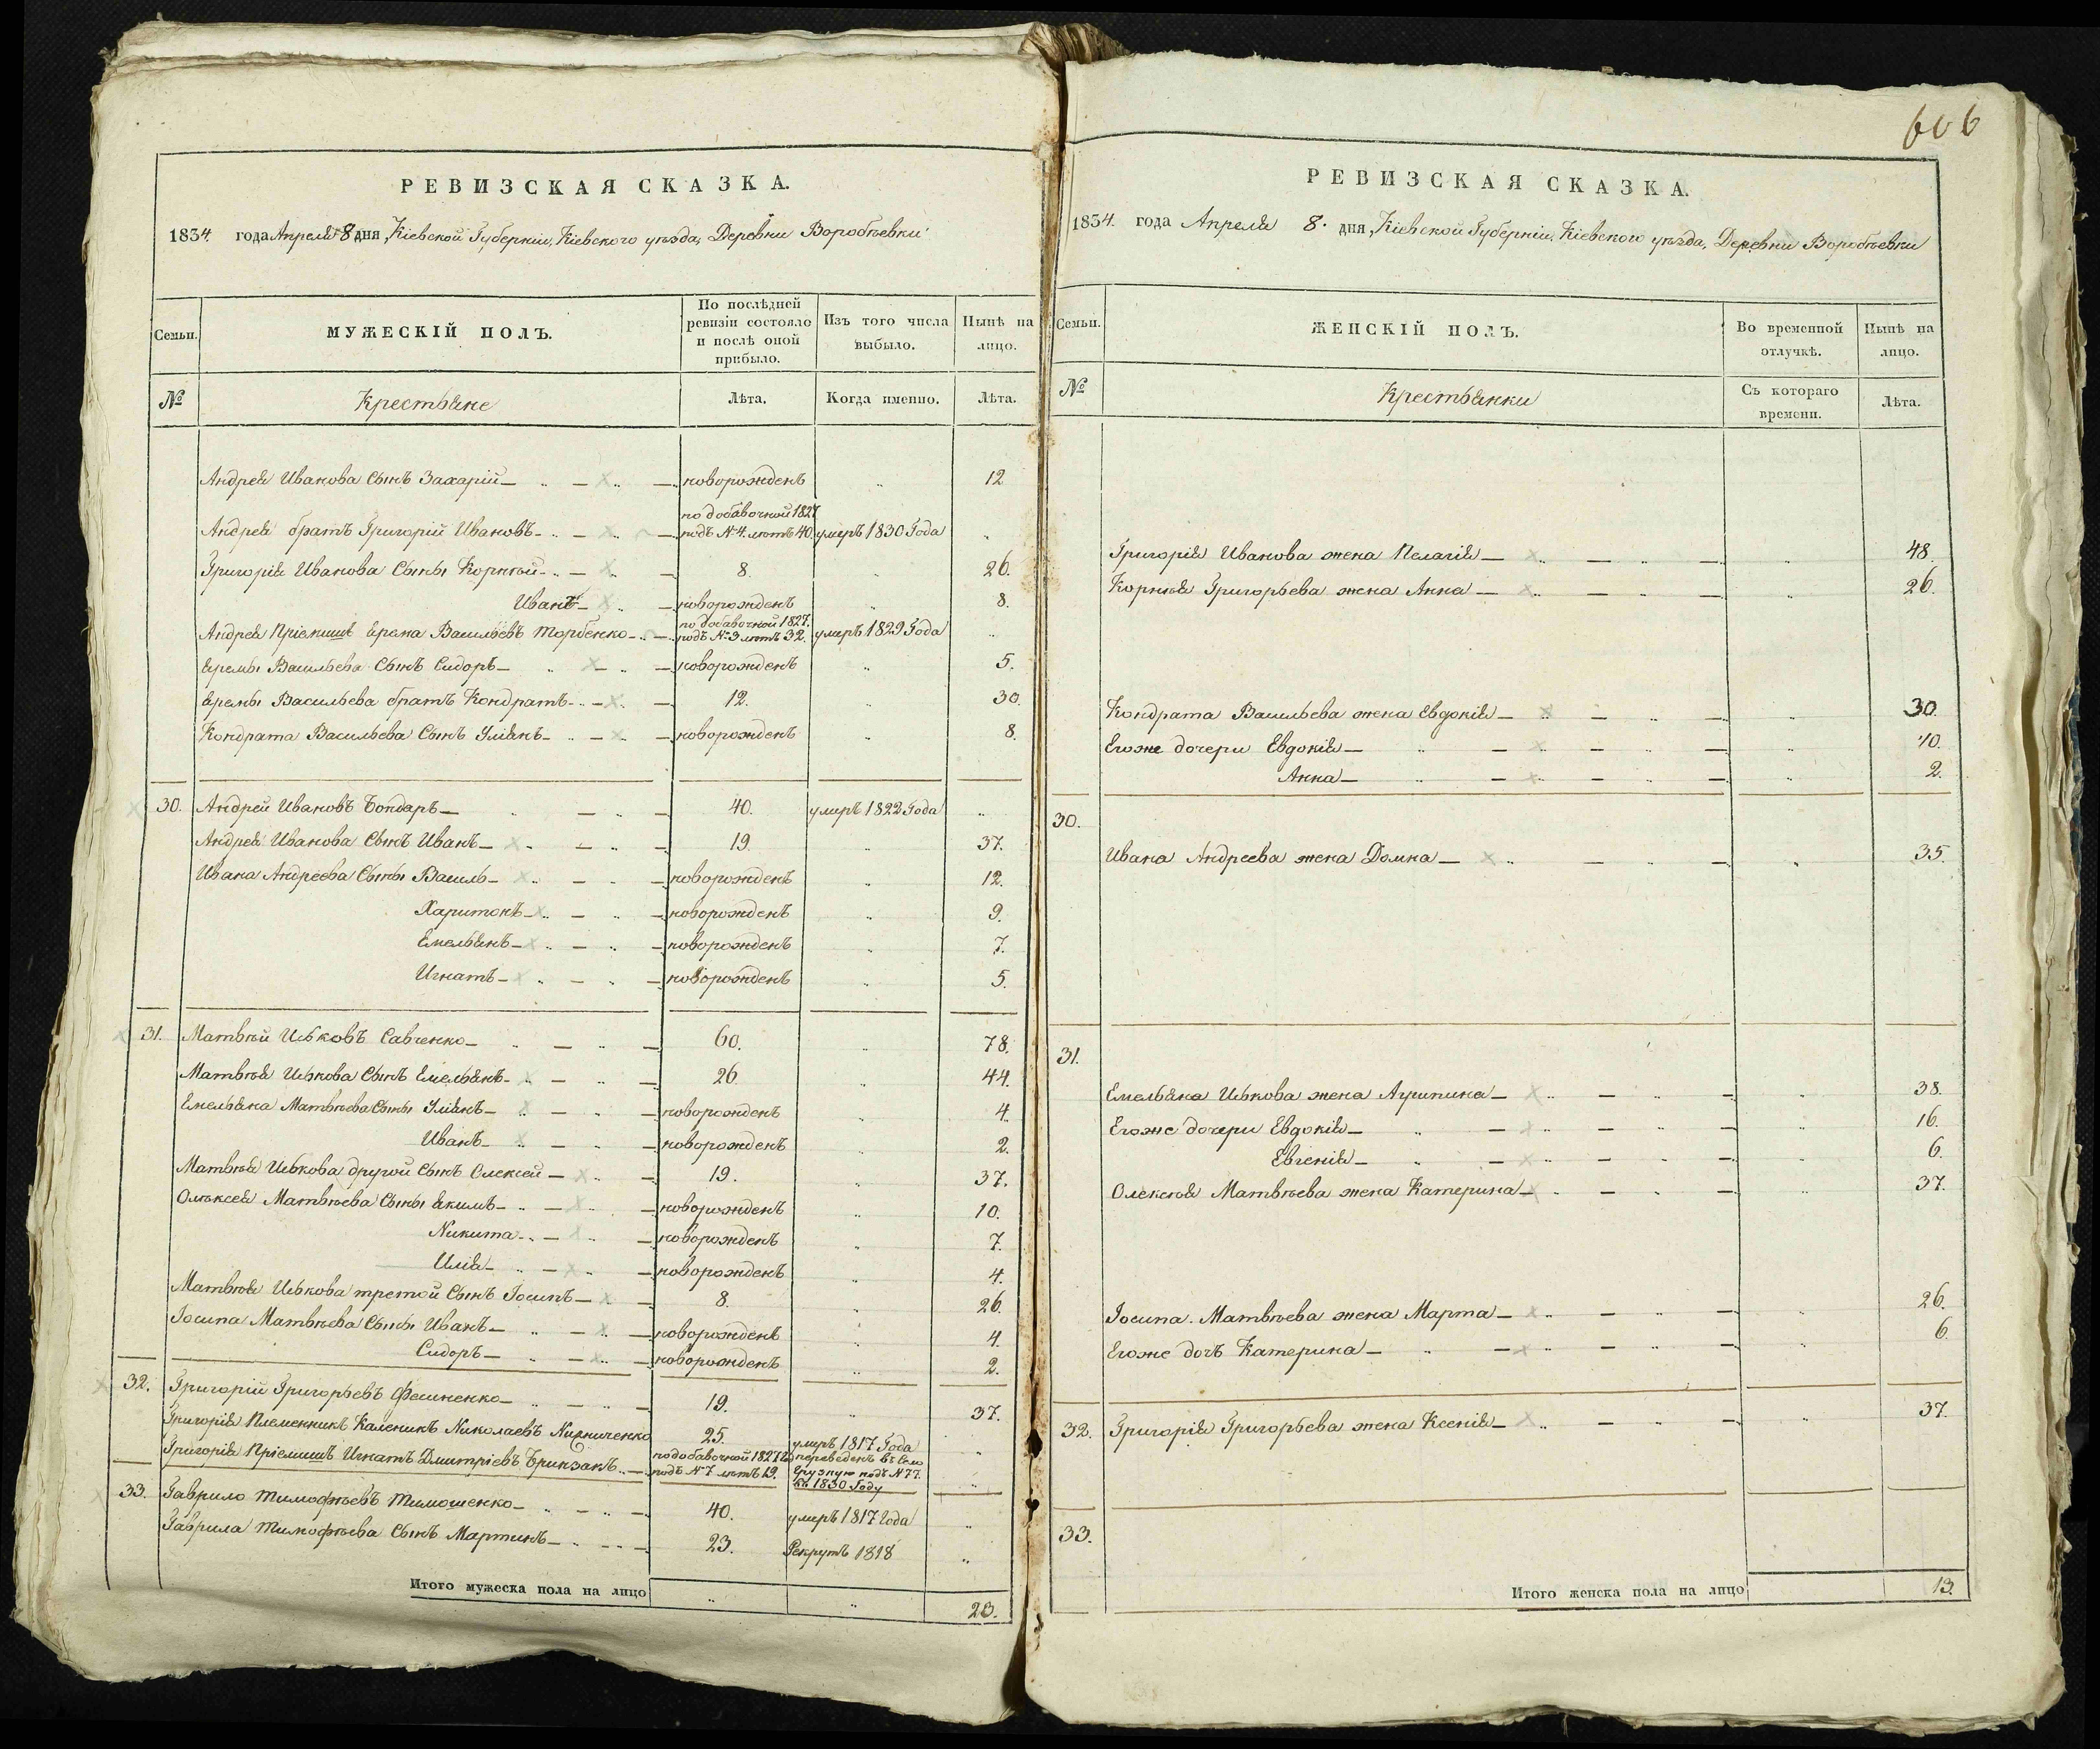 606
РЕВИЗСКАЯ СКАЗКА.
1834 года Апреля 8 дня, Кіевской Губерніи, Кіевского уезда, Деревни Воробъевки
Семьи.
МУЖЕСКІЙ ПОЛЪ.
По послѣдней ревизіи состояло и послѣ оной прибыло.
Изъ того числа выбыло.
Нынѣ на лицо.
№
Крестьяне
Лѣта.
Когда именно.
Лѣта.
Андрея Иванова Сынъ Захарій — новорожденъ „ 12
по добавочной 1827
Андрея братъ Григорій Ивановъ — подъ № 4. летъ 40. умеръ 1830 Года „
Григорія Иванова Сыны Корнѣй — 8. „ 26.
Иванъ — новорожденъ „ 8.
по добавочной 1827.
Андрея Пріемышъ Ерема Васильевъ Торбенко — подъ № 3 летъ 32. умеръ 1829 Года „
Еремы Васильева Сынъ Сидоръ — новорожденъ „ 5.
Еремы Васильева братъ Кондратъ — 12. „ 30.
Кондрата Васильева Сынъ Улiянъ — новорожденъ „ 8.
30. Андрей Ивановъ Бондарь — 40. умеръ 1822 Года „
Андрея Иванова Сынъ Иванъ — 19. „ 37.
Ивана Андреева Сыны Василь — новорожденъ „ 12.
Харитонъ — новорожденъ „ 9.
Емельянъ — новорожденъ „ 7.
Игнатъ — новорожденъ „ 5.
31. Матвѣй Иськовъ Савченко — 60. „ 78.
Матвѣя Иськова Сынъ Емельянъ — 26. „ 44.
Емельяна Матвѣева Сыны Улiянъ — новорожденъ „ 4.
Иванъ — новорожденъ „ 2.
Матвѣя Иськова другой Сынъ Олексей — 19. „ 37.
Олѣксея Матвѣева Сыны Якимъ — новорожденъ „ 10.
Никита — новорожденъ „ 7.
Илiя — новорожденъ „ 4.
Матвѣя Иськова третой Сынъ Іосипъ — 8. „ 26.
Іосипа Матвѣева Сыны Иванъ — новорожденъ „ 4.
Сидоръ — новорожденъ „ 2.
32. Григорій Григорьевъ Фесиненко — 19. „ 37.
Григорія Племенникъ Каленикъ Николаевъ 25. умеръ 1817 Года „
по добавочной 1827 переведенъ въ Село
Григорія Пріемышъ Игнатъ Дмитріевъ — подъ № 7 летъ 19. подъ № 77. „
въ 1830 Году
33. Гаврило Тимофѣевъ Тимошенко — 40. умеръ 1817 Года „
Гаврила Тимофѣева Сынъ Мартинъ — 23. Рекрутъ 1818 „
Итого мужеска пола на лицо „ „ 23.
РЕВИЗСКАЯ СКАЗКА.
1834. года Апреля 8. дня, Кіевской Губерніи, Кіевского уезда, Деревни Воробъевки
Семьи.
ЖЕНСКІЙ ПОЛЪ.
Во временной отлучкѣ.
Нынѣ на лицо.
№
Крестьянки
Съ котораго времени.
Лѣта.
Григорія Иванова жена Пелагія — „ 48.
Корнѣя Григорьева жена Анна — „ 26.
Кондрата Васильева жена Евдокія — „ 30.
Егоже дочери Евдокія — „ 10.
Анна — „ 2.
30.
Ивана Андреева жена Домна — „ 35.
31.
Емельяна Иськова жена Агрипина — „ 38.
Егоже дочери Евдокія — „ 16.
Евгенія — „ 6.
Олексѣя Матвѣева жена Катерина — „ 37.
Іосипа Матвѣева жена Марта — „ 26.
Егоже дочъ Катерина — „ 6.
32. Григорія Григорьева жена Ксенія — „ 37.
33.
Итого женска пола на лицо 13.